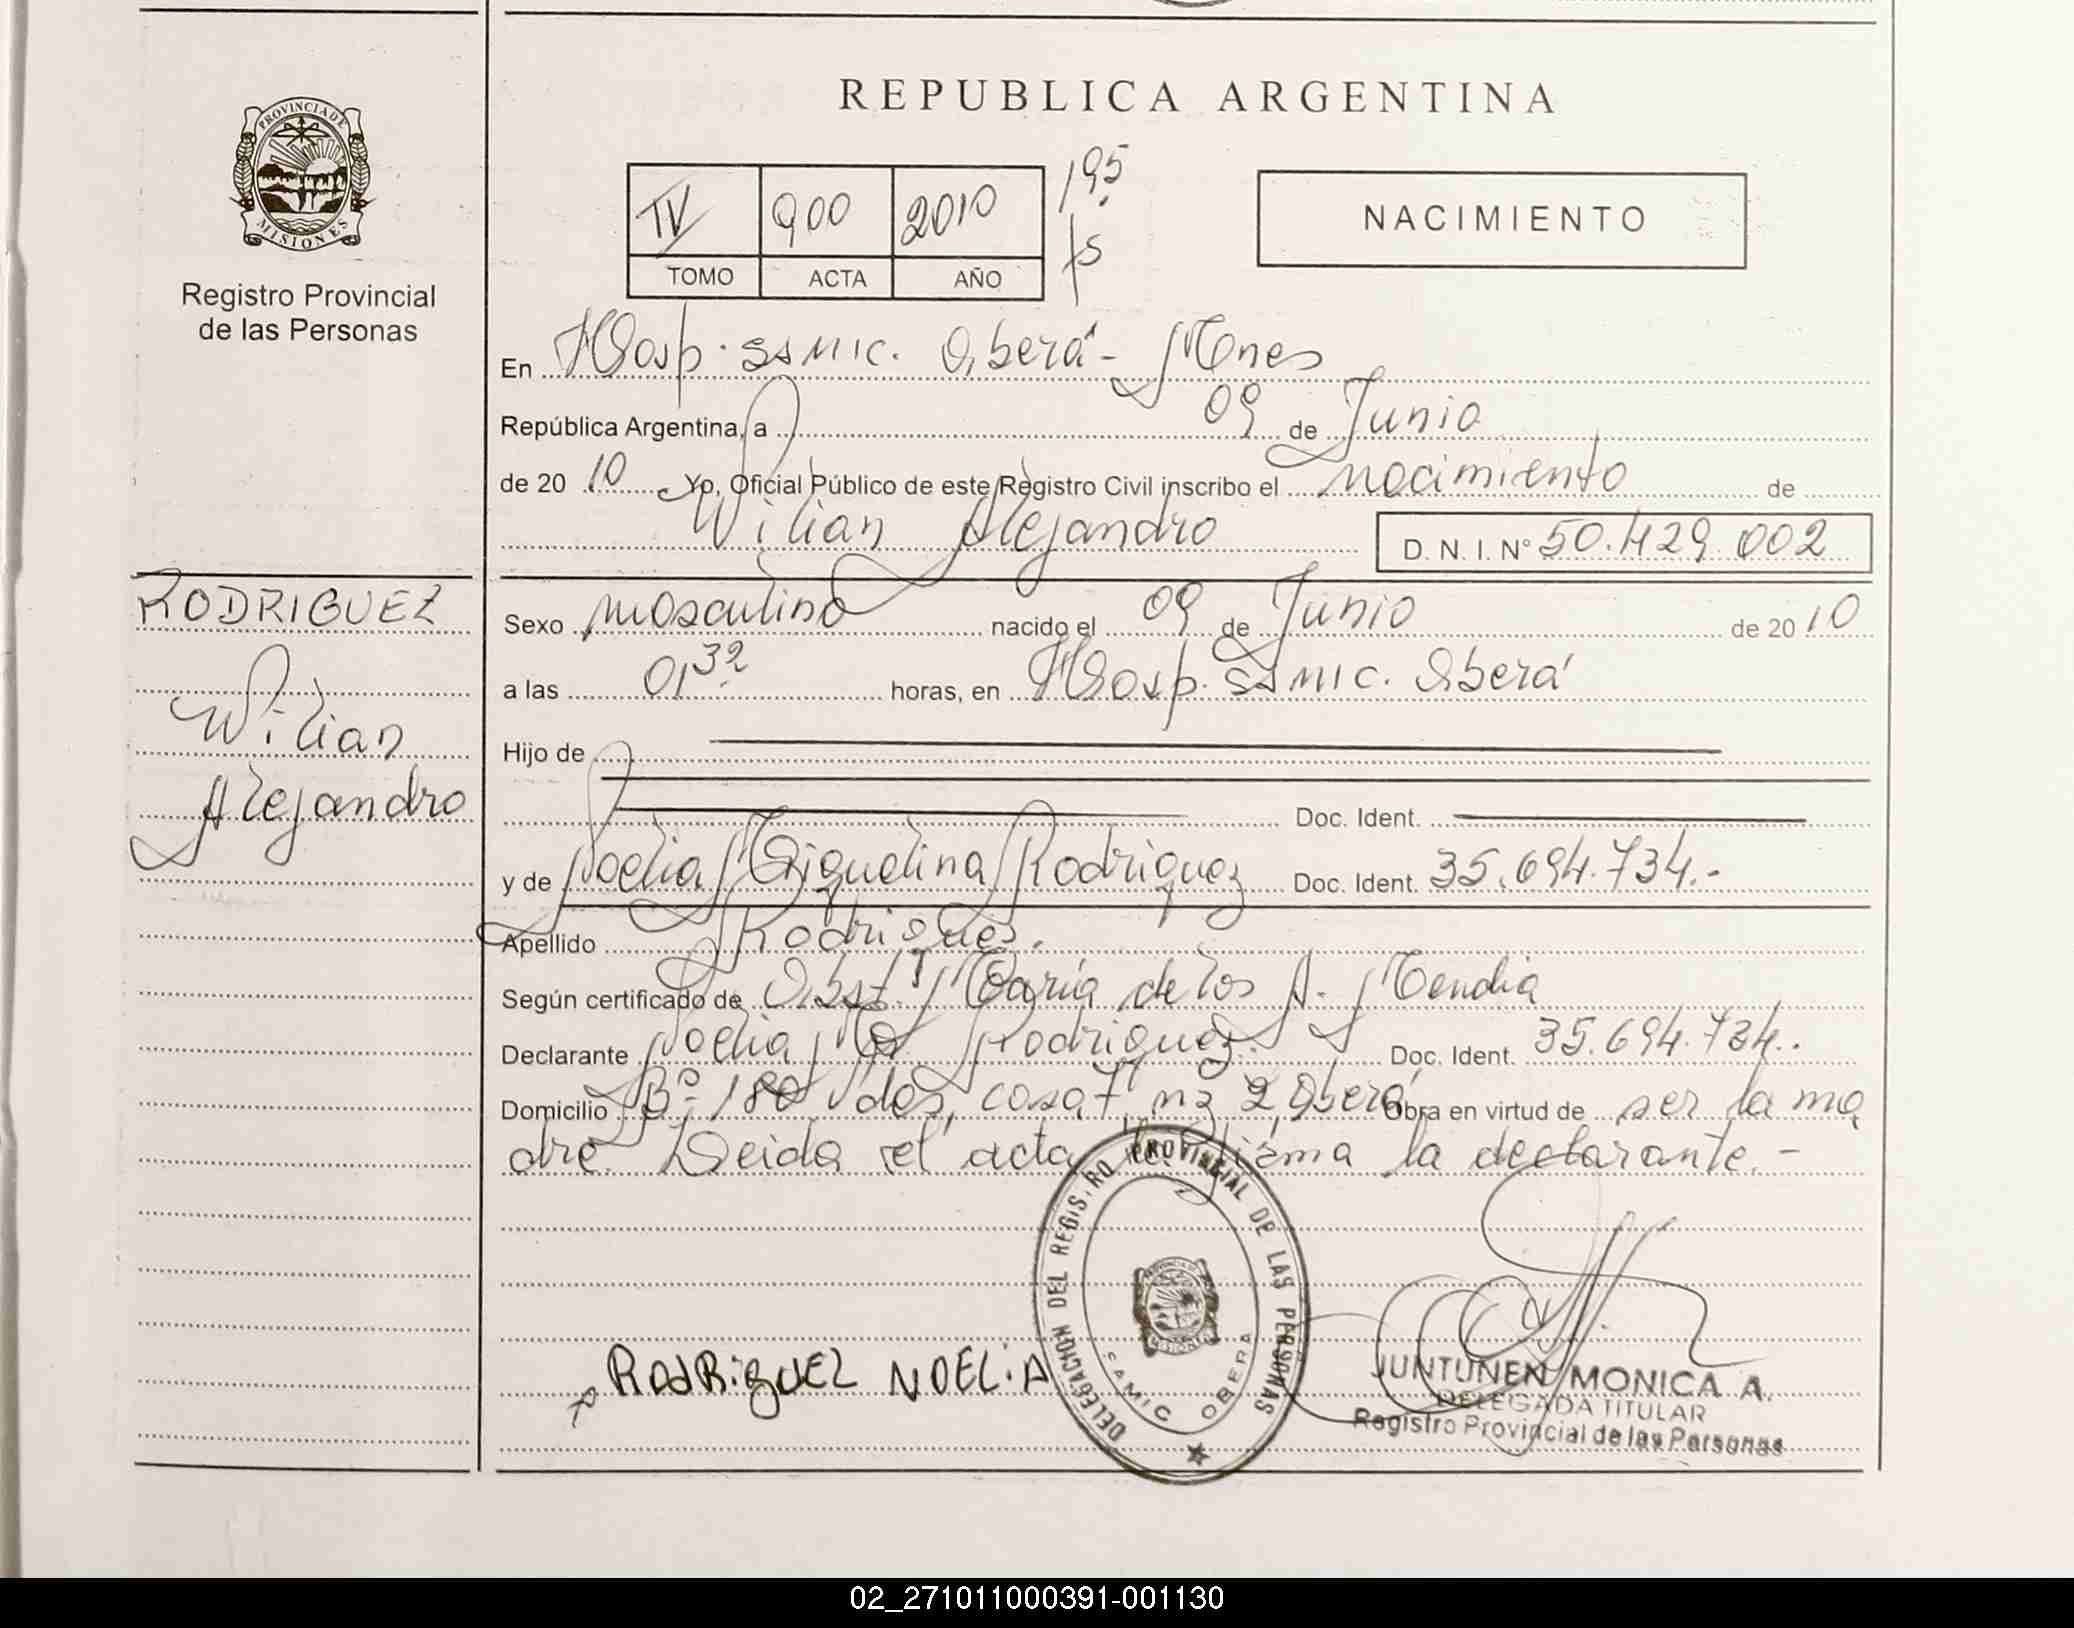 REPUBLICA ARGENTINA
PROVINCIA DE
MISIONES
Registro Provincial
de las Personas
IV 900 2010 195
TOMO ACTA AÑO fs
NACIMIENTO
En Hosp. SAMIC. Oberá - Mnes
República Argentina, a 09 de Junio
de 20 10 Yo, Oficial Público de este Registro Civil inscribo el nacimiento de
Wilian Alejandro D. N. I. N° 50.429.002
RODRIGUEZ
Wilian
Alejandro
Sexo masculino nacido el 09 de Junio de 20 10
a las 01 32 horas, en Hosp. SAMIC. Oberá
Hijo de
Doc. Ident.
y de Noelia Miquelina Rodriguez Doc. Ident. 35.694.734.-
Apellido Rodriguez.
Según certificado de Obst. María de los A. Mendia
Declarante Noelia Rodriguez. Doc. Ident. 35.694.734.
Domicilio B° 180 vdas, casa 7, mz 2, Oberá Obra en virtud de ser la ma
dre. Leida el acta firma la declarante.-
DELEGACION DEL REGISTRO PROVINCIAL DE LAS PERSONAS
SAMIC OBERA
MISIONES
RODRIGUEZ NOELIA
JUNTUNEN MONICA A.
DELEGADA TITULAR
Registro Provincial de las Personas
02_271011000391-001130